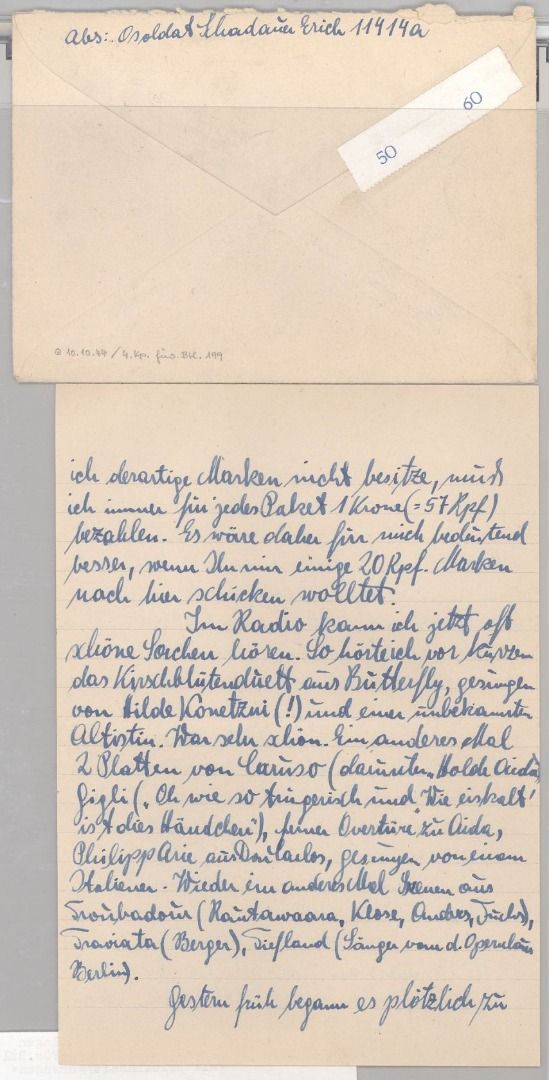 Abs: Osoldat Schadauer Erich 11414a
60
50
10.10.44 / 4.Kp. Btl. 199
ich derartige Marken nicht besitze, muß
ich immer für jedes Paket 1 Krone (= 57 Rpf)
bezahlen. Es wäre daher für mich bedeutend
besser, wenn Ihr mir einige 20 Rpf. Marken
nach hier schicken wolltet.
Im Radio kann ich jetzt oft
schöne Sachen hören. So hörte ich vor kurzem
das Kirschblütenduett aus Butterfly, gesungen
von Hilde Konetzni (!) und einer unbekannten
Altistin. War sehr schön. Ein anderes Mal
2 Platten von Caruso (darunter „Holde Aida“,
Gigli („Oh wie so trügerisch und „Wie eiskalt
ist dies Händchen“), ferner Overtüre zu Aida,
Philipp Arie aus Don Carlos, gesungen von einem
Italiener. Wieder ein anderes Mal Szenen aus
Troubadour (Rautawaara, Klose, Andres, Fuchs),
Traviata (Berger), Tiefland (Sänger vom d. Opernhaus
Berlin).
Gestern früh begann es plötzlich zu